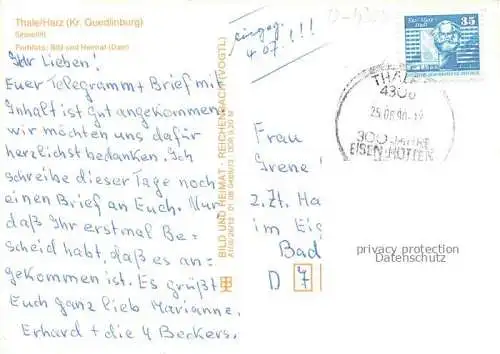 Thale/Harz (Kr. Quedlinburg)
Sessellift
Farbfoto: Bild und Heimat
eingeg.
4.07.!!!
Ihr Lieben!
Euer Telegramm + Brief mit
Inhalt ist gut angekommen
wir möchten uns dafür
herzlichst bedanken. Ich
schreibe dieser Tage noch
einen Brief an Euch. Nur
daß Ihr erstmal Be-
scheid habt, daß es an-
gekommen ist. Es grüßt
Euch ganz lieb Marianne,
Erhard + die 4 Beckers.
BILD UND HEIMAT · REICHENBACH (VOGTL)
Karl-Marx-
Stadt
35
THALE
4308
25.06.90-19
300 JAHRE
EISEN-HÜTTEN
Frau
Irene
z.Zt. Ha
im Eig
Bad
D 7
privacy protection
Datenschutz